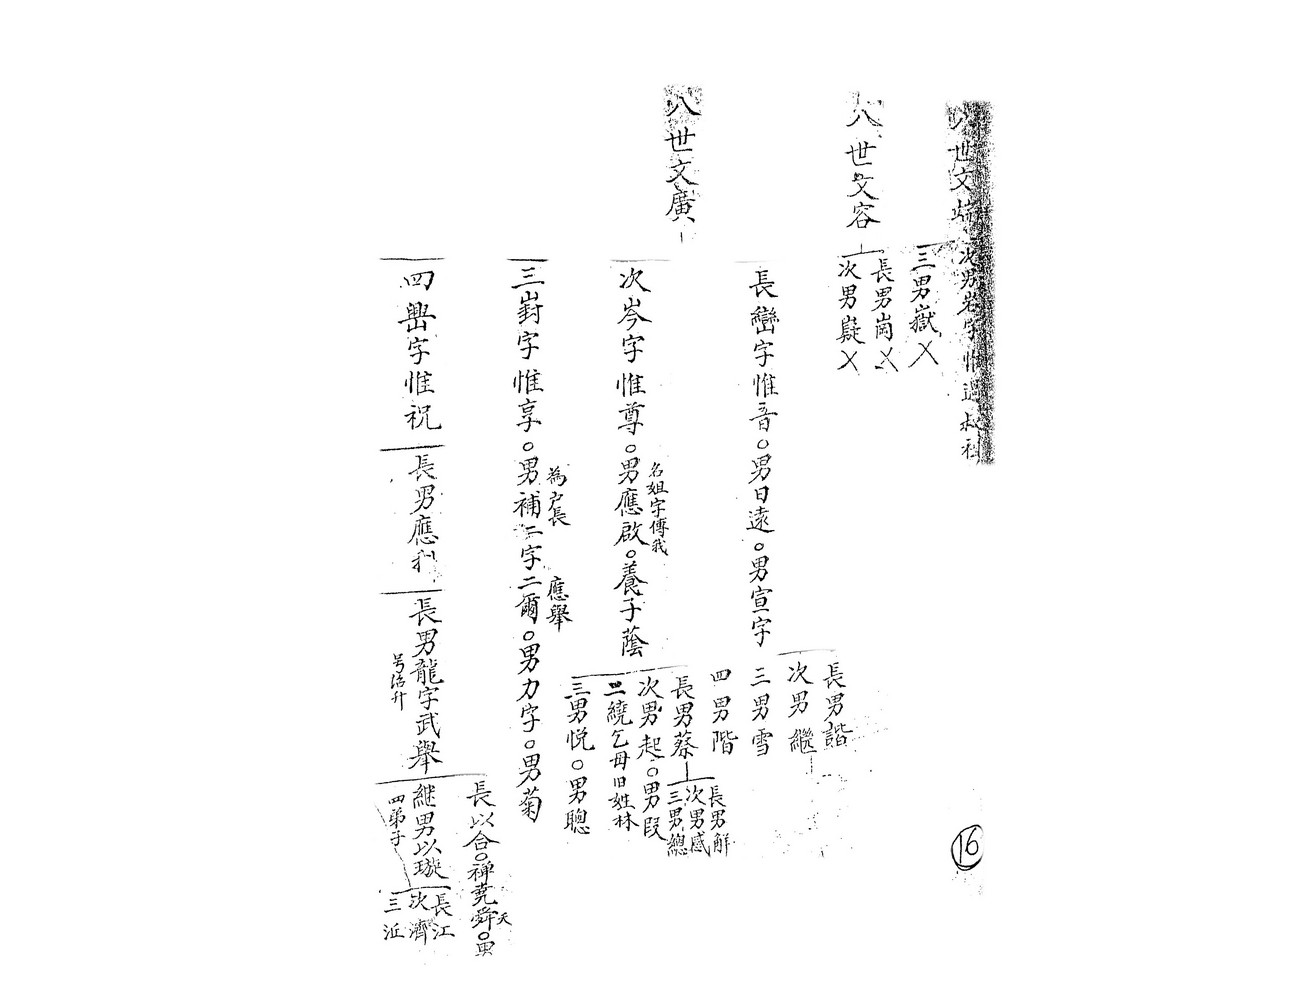 八世文端
次男岩字惟過叔社
三男嶽㐅
八世文容
長男崗㐅
次男嶷㐅
八世文廣
長巒字惟音○男日遠○男宣字
長男諧
次男繼
三男雪
四男階
次岑字惟尊○男應啟○養子蔭
名姐字傳我
長男蔡
長男解
次男感
三男總
次男起○男段
二繞乞毋旧姓林
三男悦○男聰
三崶字惟享○男補二字二爾○男力字○男菊
為户長
應舉
四㠛字惟祝
長男應利
長男龍字武舉
号浩升
長以合○禪堯舜○男
天
継男以璇
四弟子
長江
次濟
三泟
16